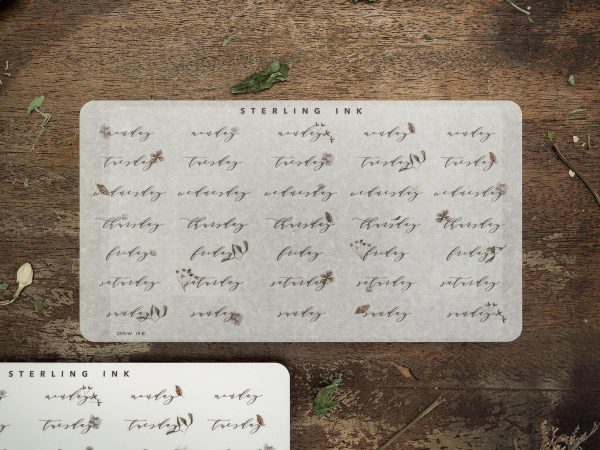 STERLING INK
monday monday monday monday monday
tuesday tuesday tuesday tuesday tuesday
wednesday wednesday wednesday wednesday wednesday
thursday thursday thursday thursday thursday
friday friday friday friday friday
saturday saturday saturday saturday saturday
sunday sunday sunday sunday sunday
STERLING INK
monday monday monday
tuesday tuesday tuesday